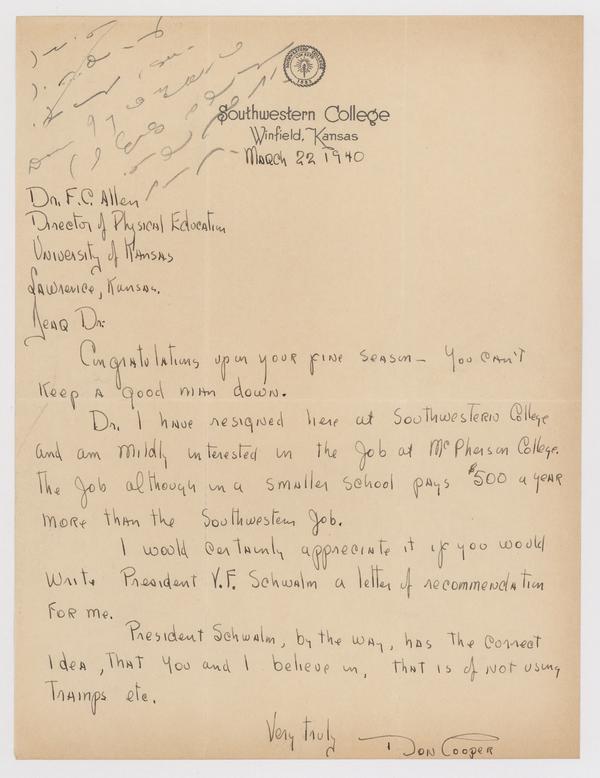 Southwestern College
Winfield, Kansas
March 22 1940
Dr. F.C. Allen
Director of Physical Education
University of Kansas
Lawrence, Kansas.
Dear Dr:
Congratulations upon your fine season - You can't
keep a good man down.
Dr. I have resigned here at Southwestern College
and am mildly interested in the Job at McPherson College.
The Job although in a smaller school pays $500 a year
more than the Southwestern Job.
I would certainly appreciate it if you would
write President V.F. Schwalm a letter of recommendation
for me.
President Schwalm, by the way, has the correct
Idea, that you and I believe in, that is of not using
Tramps etc.
Very truly
Don Cooper